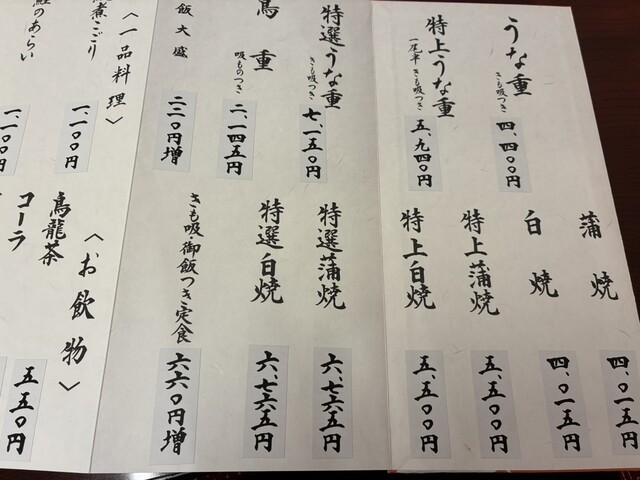 うな重
きも吸つき
四、四〇〇円
特上うな重
一尾半 きも吸つき
五、九四〇円
特選うな重
きも吸つき
七、一五〇円
鳥重
吸ものつき
二、一四五円
飯大盛
二二〇円増
蒲焼
四、〇一五円
白焼
四、〇一五円
特上蒲焼
五、五〇〇円
特上白焼
五、五〇〇円
特選蒲焼
六、七六五円
特選白焼
六、七六五円
きも吸御飯つき定食
六六〇円増
〈一品料理〉
煮こごり
一、一〇〇円
鯉のあらい
一、一〇〇円
〈お飲物〉
烏龍茶
五五〇円
コーラ